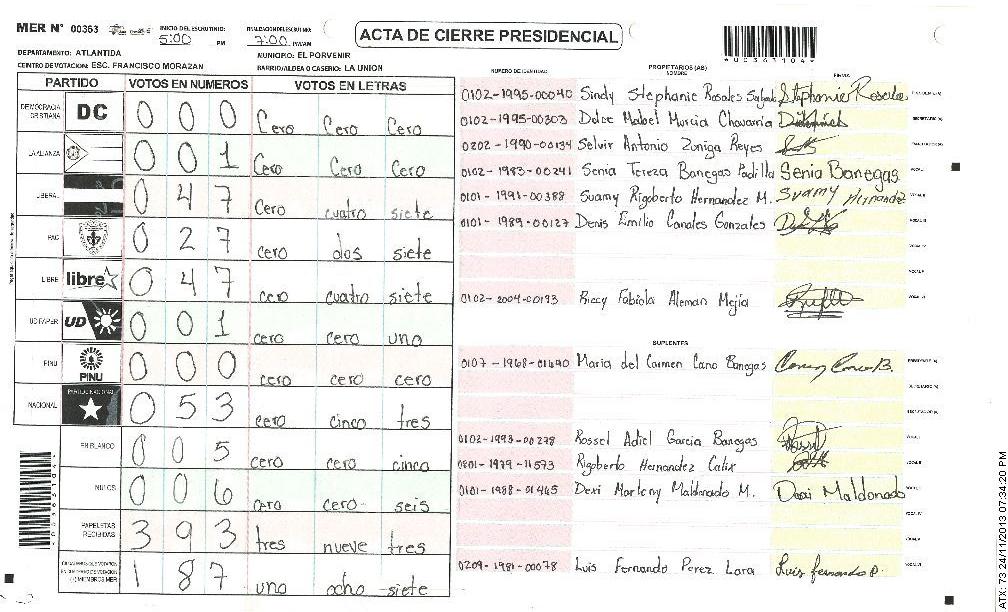 MER N° 00363 INICIO DEL ESCRUTINIO: 5:00 PM FINALIZACION ESCRUTINIO: 7:00 PM/AM
ACTA DE CIERRE PRESIDENCIAL
*00363104*
DEPARTAMENTO: ATLANTIDA MUNICIPIO: EL PORVENIR
CENTRO DE VOTACION: ESC. FRANCISCO MORAZAN BARRIO/ALDEA O CASERIO: LA UNION
PARTIDO VOTOS EN NUMEROS VOTOS EN LETRAS
DEMOCRACIA CRISTIANA DC 0 0 0 Cero Cero Cero
LA ALIANZA 0 0 1 Cero Cero Cero
LIBERAL 0 4 7 Cero cuatro siete
PAC 0 2 7 cero dos siete
LIBRE libre 0 4 7 cero cuatro siete
UD FAPER UD 0 0 1 cero cero uno
PINU PINU 0 0 0 cero cero cero
NACIONAL PARTIDO NACIONAL 0 5 3 cero cinco tres
EN BLANCO 0 0 5 cero cero cinco
NULOS 0 0 6 cero cero seis
PAPELETAS RECIBIDAS 3 9 3 tres nueve tres
1 8 7 uno ocho siete
*00363104*
NUMERO DE IDENTIDAD PROPIETARIOS (AS) NOMBRE FIRMA
0102-1995-00040 Sindy Stephanie Rosales Stephanie Rosales
0102-1995-00303 Dolce Mabel Murcia Chavarria
0202-1990-00134 Selvir Antonio Zuniga Reyes
0102-1983-00241 Senia Tereza Banegas Padilla Senia Banegas
0101-1991-00388 Suamy Rigoberto Hernandez M. Suamy Hernandez
0101-1989-00127 Denis Emilio Canales Gonzales
0102-2004-00193 Riccy Fabiola Aleman Mejía
SUPLENTES
0107-1968-01690 Maria del Carmen Cano Banegas
0102-1993-00278 Rossel Adiel Garcia Banegas
0801-1979-11573 Rigoberto Hernandez Calix
0101-1988-01465 Dexi Marleny Maldonado M. Dexi Maldonado
0209-1981-00078 Luis Fernando Perez Lara Luis fernando p.
ATX: 73 24/11/2013 07:34:20 PM